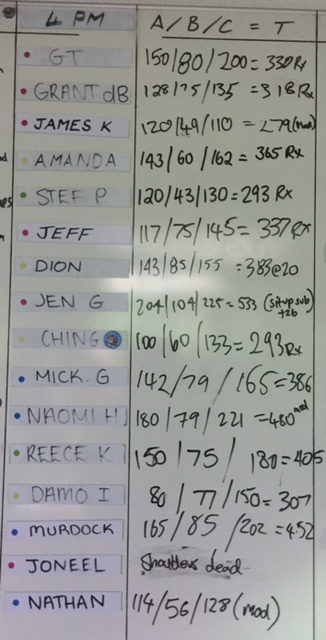 4 PM A/B/C = T
GT 150/80/200 = 330 Rx
GRANT dB 128/75/135 = 318 Rx
JAMES K 120/49/110 = 279 (mod)
AMANDA 143/60/162 = 365 Rx
STEF P 120/43/130 = 293 Rx
JEFF 117/75/145 = 337 Rx
DION 143/85/155 = 383@20
JEN G 204/104/225 = 533 (Sit-up sub +26)
CHING 100/60/133 = 293 Rx
MICK. G 142/79/165 = 386
NAOMI H 180/79/221 = 480 mod
REECE K 150/75/180 = 405
DAMO I 80/77/150 = 307
MURDOCK 165/85/202 = 452
JONEEL Shoulders dead
NATHAN 114/56/128 (mod)